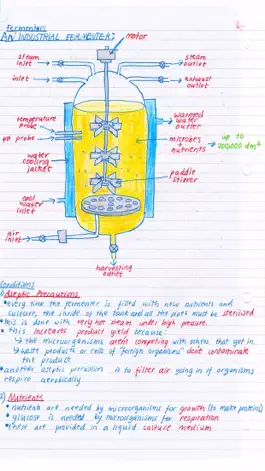 Fermenters
AN INDUSTRIAL FERMENTER:
motor
steam inlet
steam outlet
inlet
exhaust outlet
temperature probe
pH probe
warmed water outlet
microbes + nutrients
up to 200,000 dm³
water cooling jacket
paddle stirrer
cool water inlet
air inlet
harvesting outlet
Conditions
1) Aseptic Precautions
• every time the fermenter is filled with new nutrients and
culture, the inside of the tank and all the pipes must be sterilised
• this is done with very hot steam under high pressure.
• this increases product yield because:
↳ the microorganisms aren't competing with others that get in.
↳ waste products or cells of "foreign organisms" don't contaminate
the product
• another aseptic precaution is to filter air going in if organisms
respire aerobically
2) Nutrients
• nutrients are needed by microorganisms for growth (to make proteins)
• glucose is needed by microorganisms for respiration.
• these are provided in a liquid culture medium.